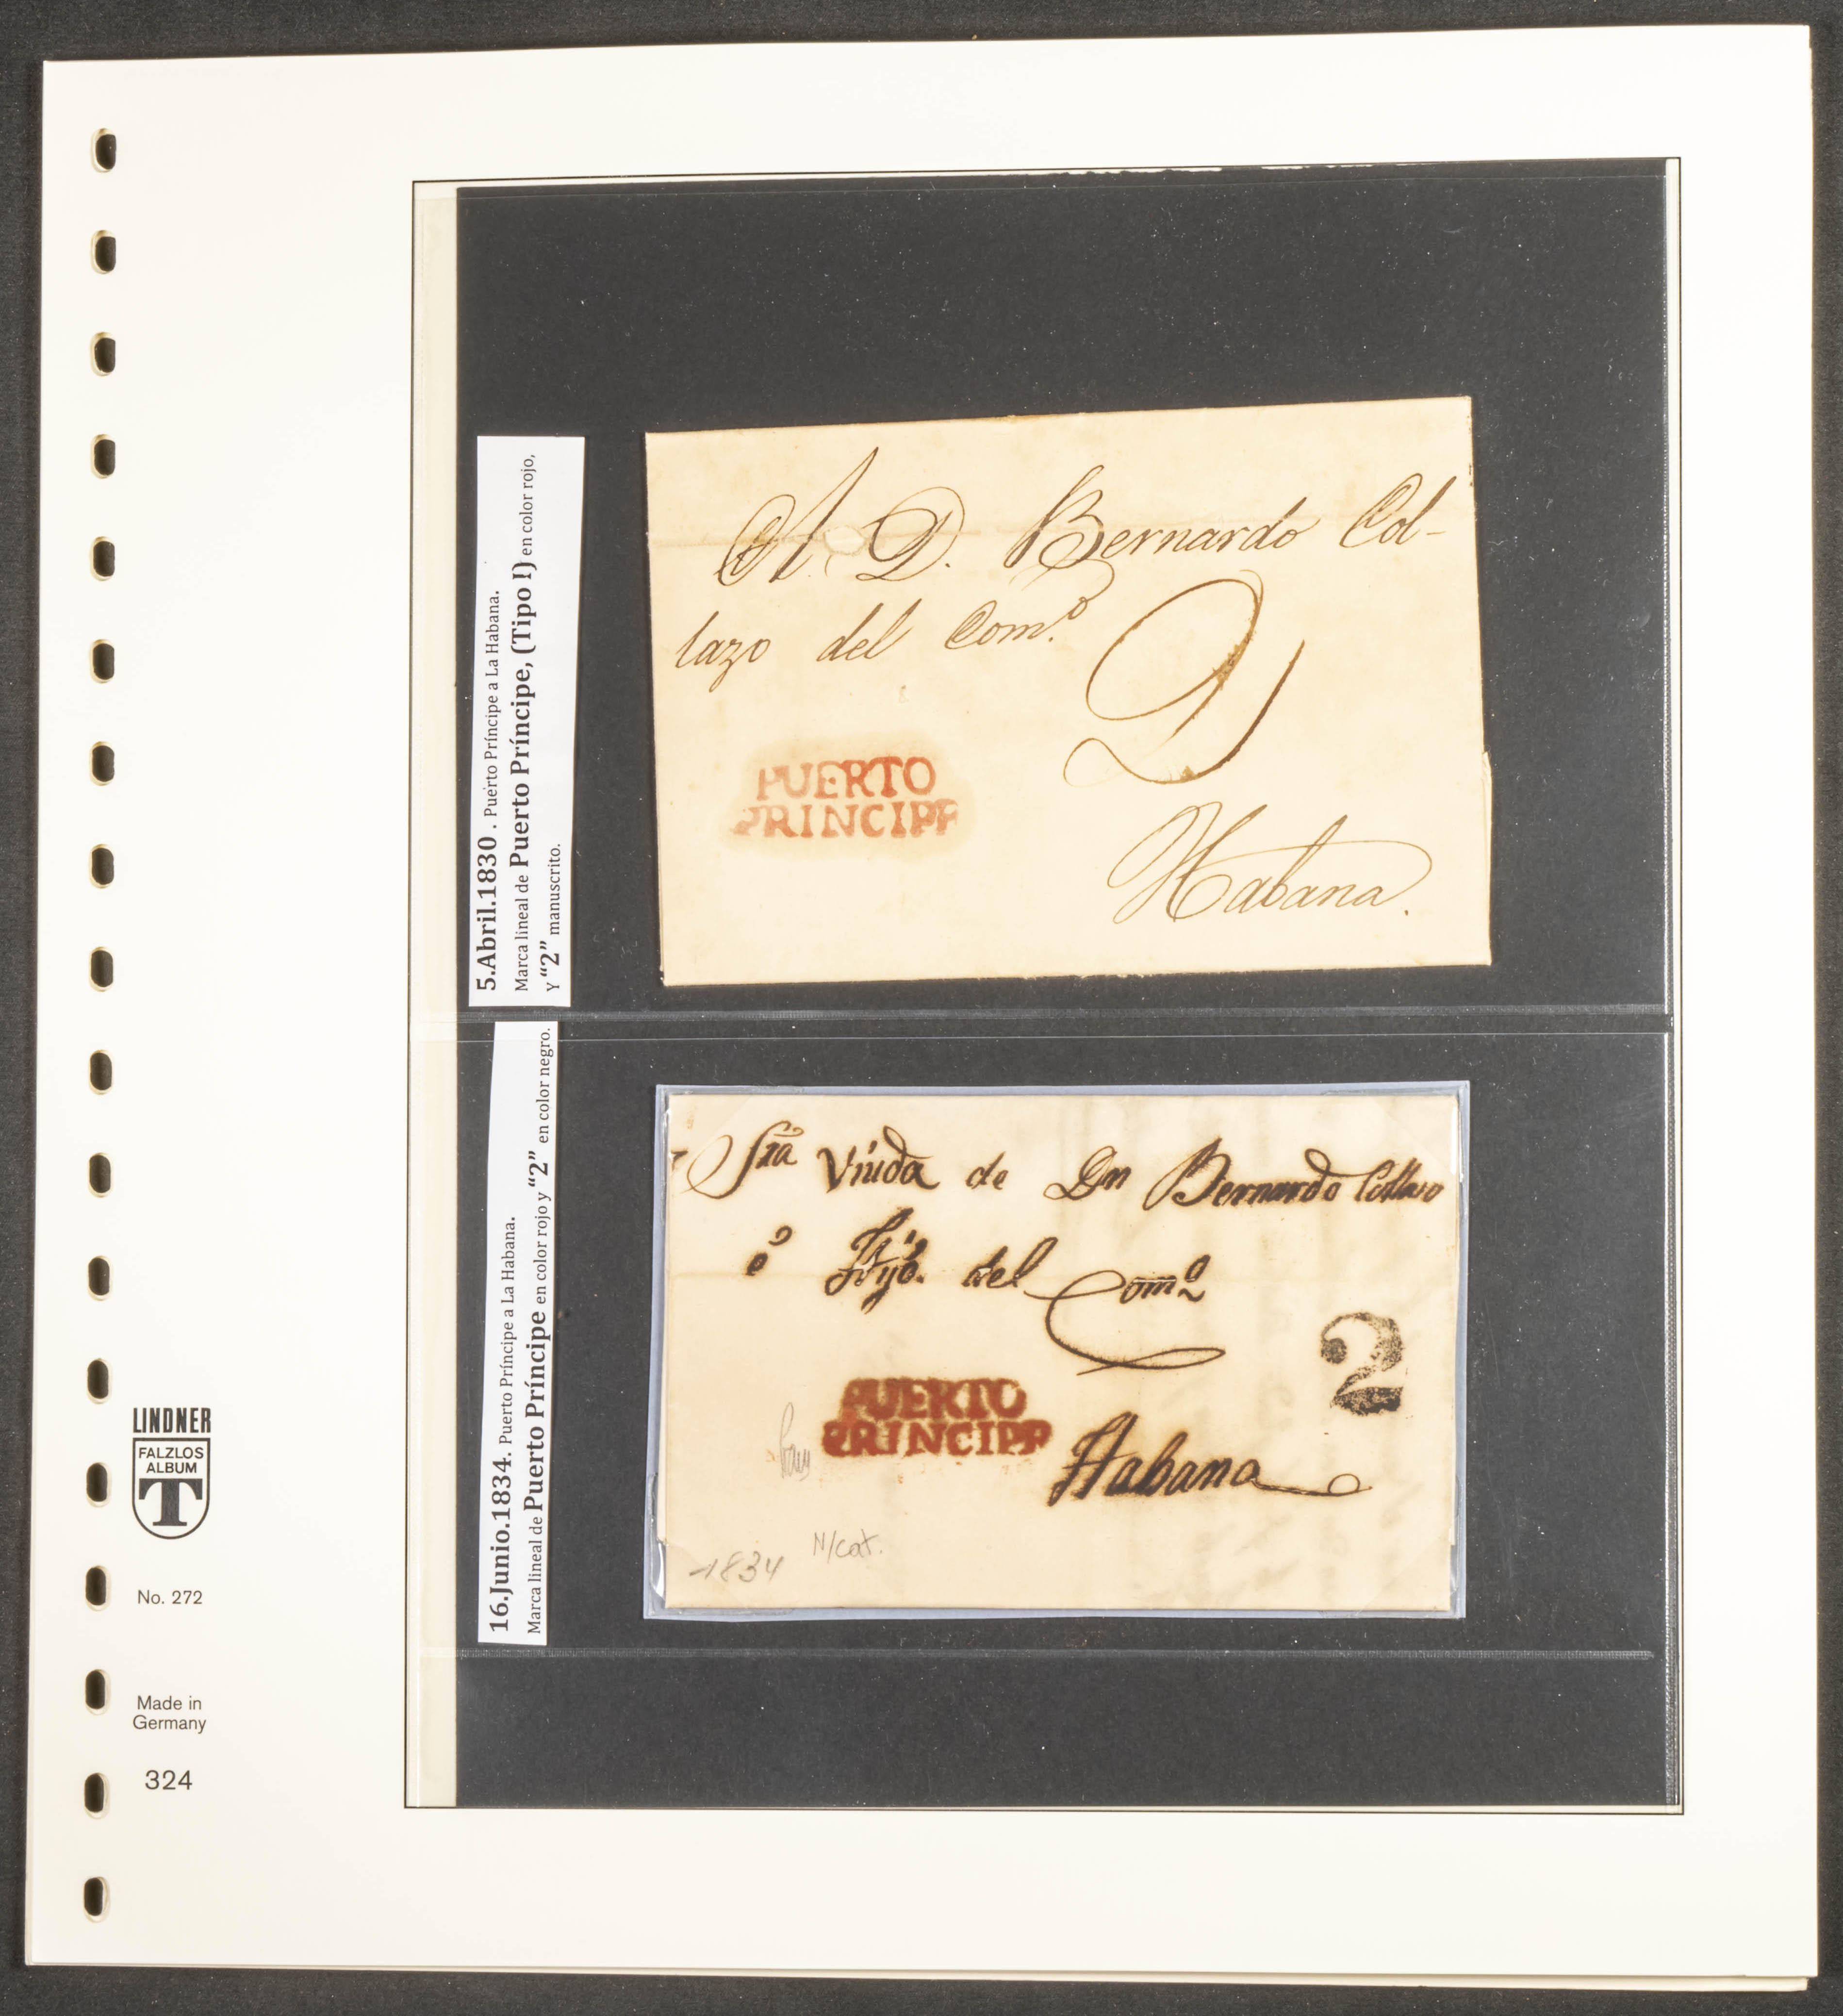 5.Abril.1830 . Puerto Príncipe a La Habana.
Marca lineal de Puerto Príncipe, (Tipo I) en color rojo,
Y “2” manuscrito.
A D. Bernardo Col-
lazo del Com.º
2
PUERTO
PRINCIPE
Habana.
16.Junio.1834. Puerto Príncipe a La Habana.
Marca lineal de Puerto Príncipe en color rojo y “2” en color negro.
Sra Viuda de Dn Bernardo Collazo
é Hijo. del Comº
2
PUERTO
PRINCIPE
Habana
1834
N/cat.
LINDNER
FALZLOS
ALBUM
T
No. 272
Made in
Germany
324